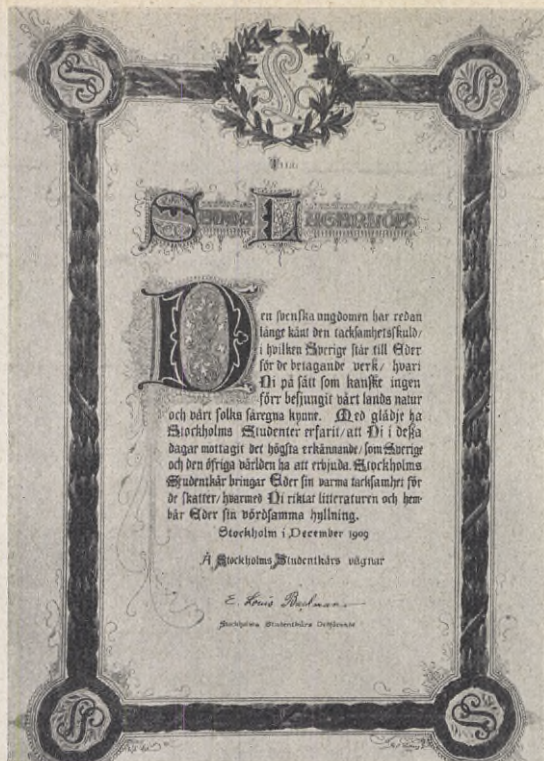 Till
Selma Lagerlöf
Den svenska ungdomen har redan
länge känt den tacksamhetsskuld/
i hvilken Sverige står till Eder
för de betagande verk/ hvari
Ni på sätt som kanske ingen
förr besjungit vårt lands natur
och vårt folks säregna kynne. Med glädje ha
Stockholms Studenter erfarit/ att Ni i dessa
dagar mottagit det högsta erkännande/ som Sverige
och den öfriga världen ha att erbjuda. Stockholms
Studentkår bringar Eder sin varma tacksamhet för
de skatter/ hvarmed Ni riktat litteraturen och hem-
bär Eder sin vördsamma hyllning.
Stockholm i December 1909
Å Stockholms Studentkårs vägnar
E. Louis
Stockholms Studentkårs Ordförande